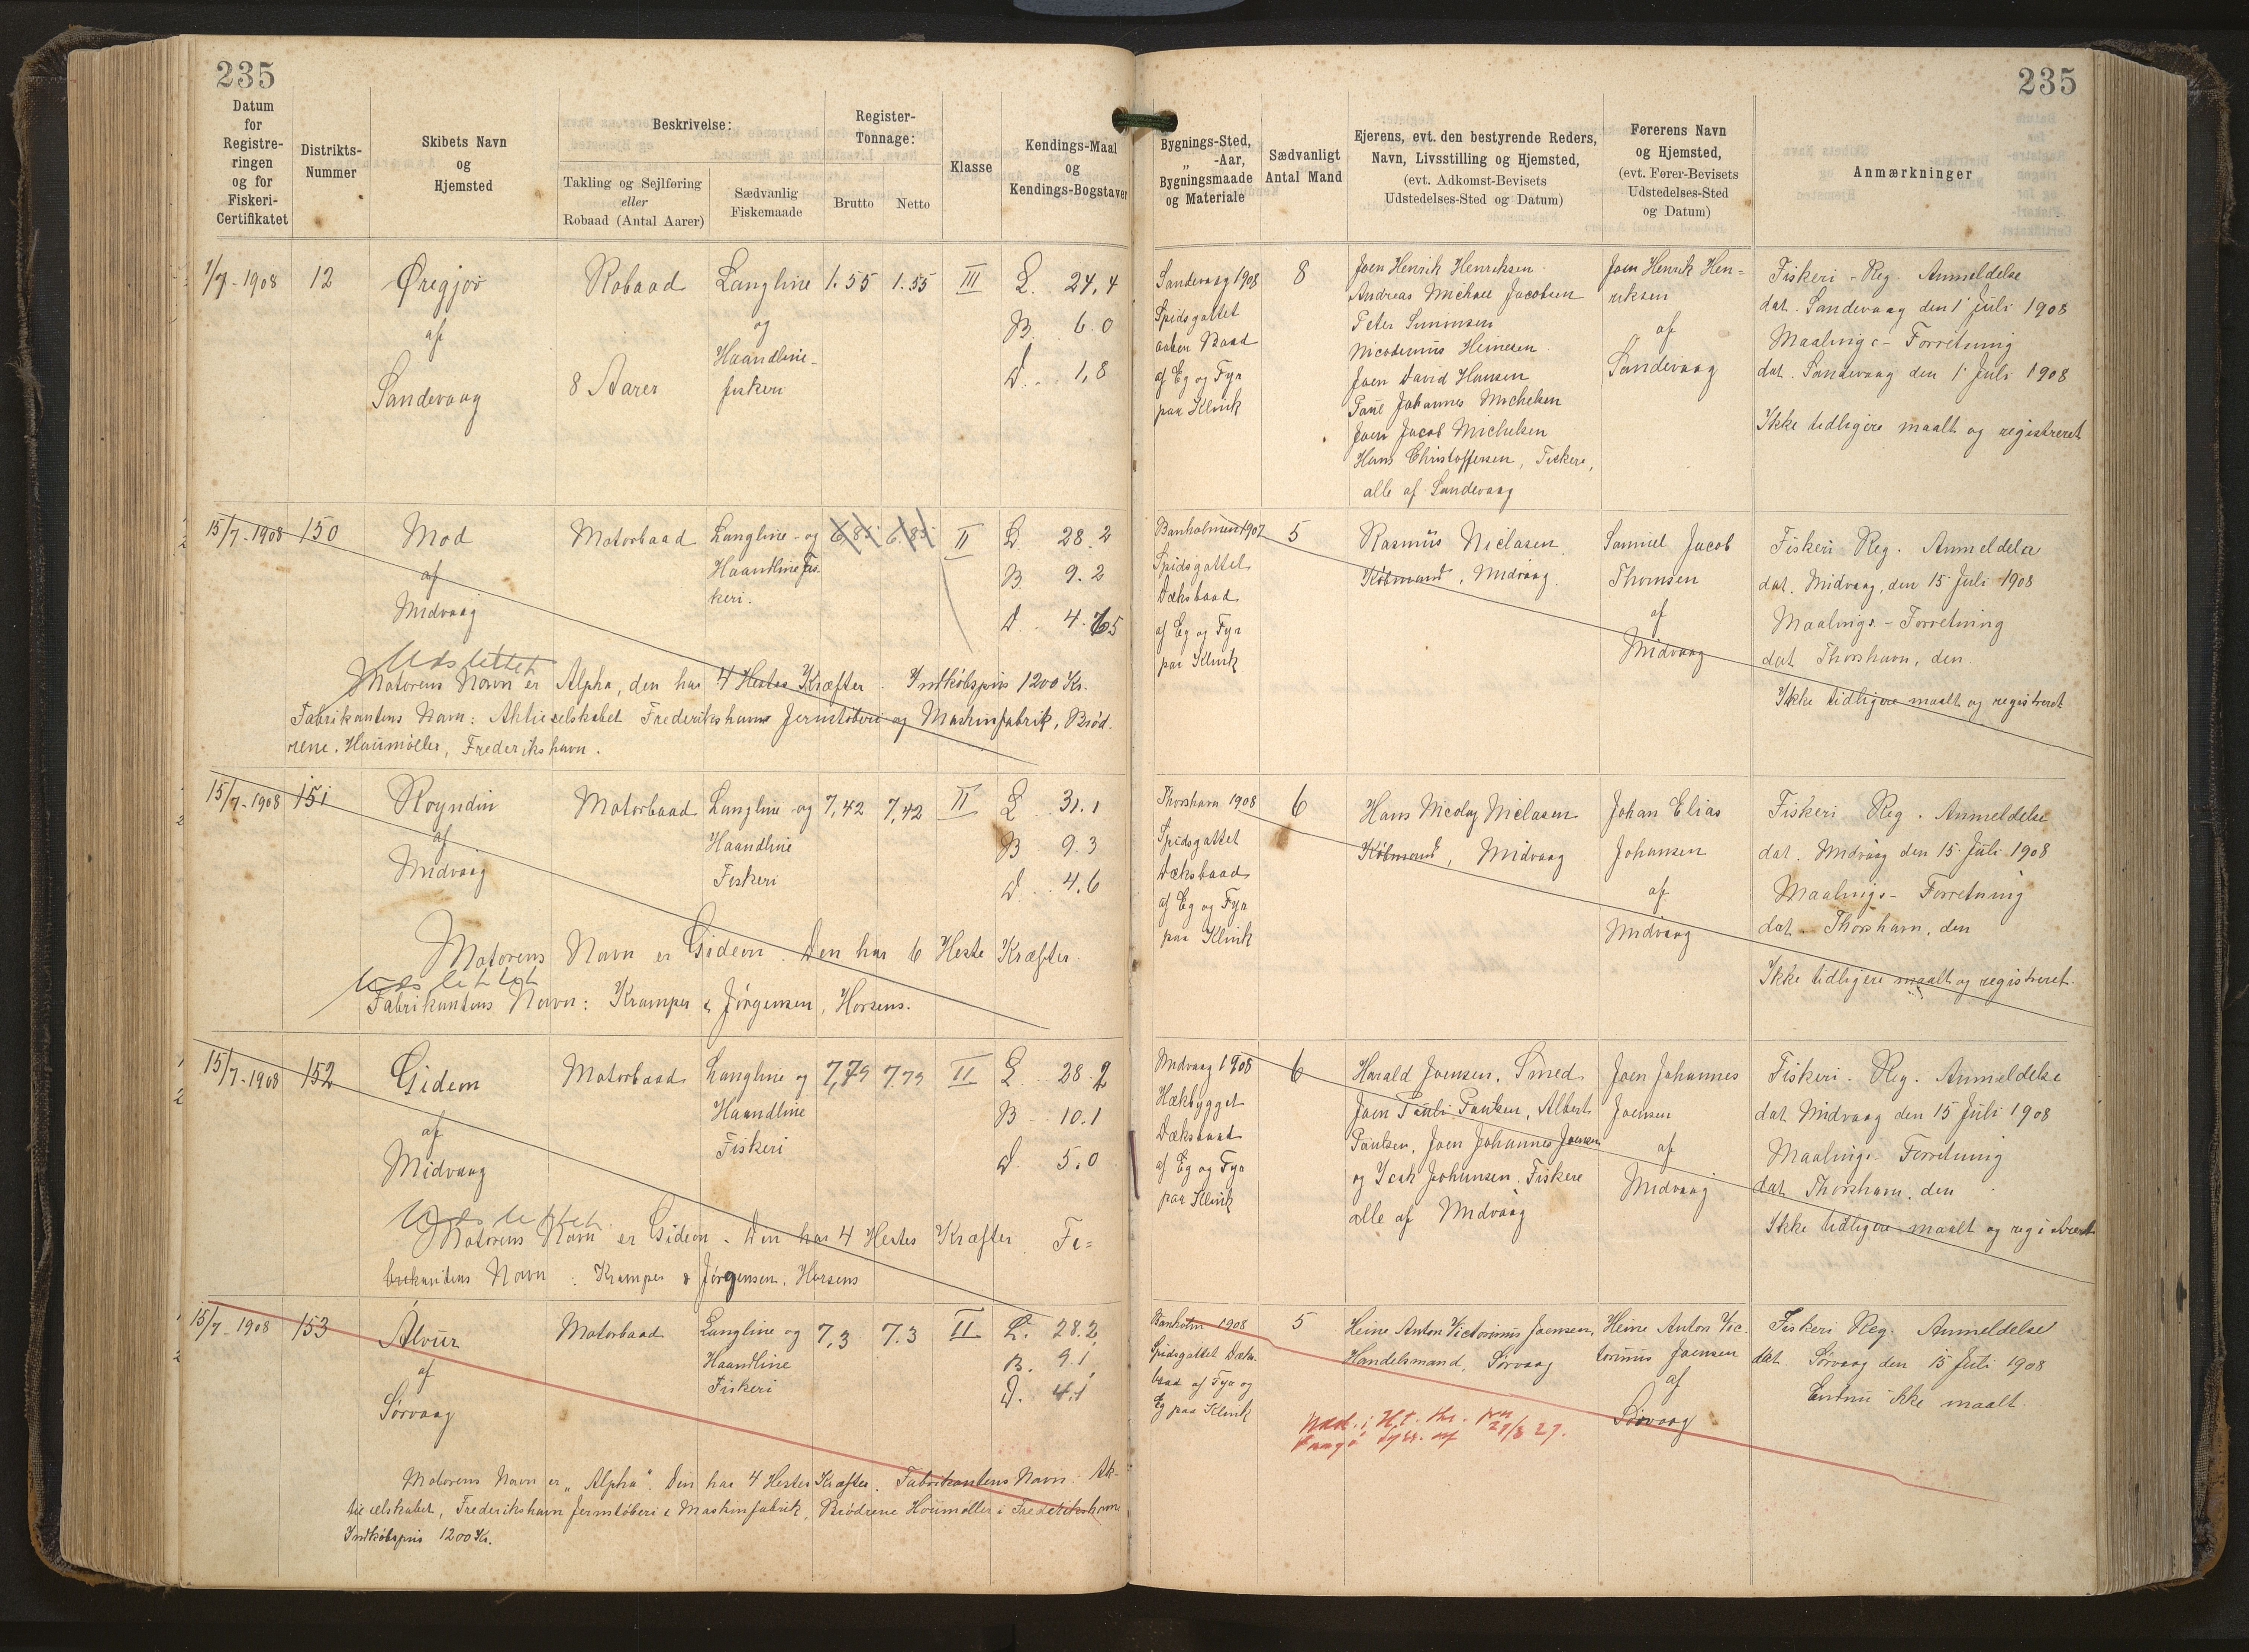 235
Datum
for
Registre-
ringen
og for
Fiskeri-
Certifikatet
Distrikts-
Nummer
Skibets Navn
og
Hjemsted
Beskrivelse:
Takling og Sejlføring
eller
Robaad (Antal Aarer)
Sædvanlig
Fiskemaade
Register-
Tonnage:
Brutto
Netto
Klasse
Kendings-Maal
og
Kendings-Bogstaver
1/7-1908 12 Øregjov Robaad Langline 1.55 1.55 III L. 24,4
af og B. 6.0
Sandevaag 8 Aarer Haandline- D. 1,8
fiskeri
15/7-1908 150 Mod Motorbaad Langline-og 6,85 6,85 II L. 28.2
af Haandline Fis- B. 9.2
Midvaag keri. D. 4.65
Udslettet
Motorens Navn er Alpha, den har 4 Hestes Kræfter. Indkøbspris 1200 Kr.
Fabrikantens Navn: Aktieselskabet Frederikshavns Jernstøberi og Maskinfabrik, Brød-
rene Houmøller, Frederikshavn.
15/7-1908 151 Royndin Motorbaad Langline og 7,42 7,42 II L. 31.1
af Haandline B 9.3
Midvaag Fiskeri D. 4.6
Motorens Navn er Gideon. Den har 6 Heste Kræfter.
Udslettet
Fabrikantens Navn: Kramper & Jørgensen, Horsens.
15/7-1908 152 Gideon Motorbaad Langline og 7,79 7.79 II L. 28.2
af Haandline B 10.1
Midvaag Fiskeri D. 5.0
Udslettet
Motorens Navn er Gideon. Den har 4 Hestes Kræfter. Fa=
brikantens Navn: Kramper & Jørgensen, Horsens
15/7-1908 153 Álvur Motorbaad Langline og 7,3 7.3 II L. 28.2
af Haandline B. 9.1
Sørvaag Fiskeri D. 4.1
Motorens Navn er „Alpha". Den har 4 Hestes Kræfter. Fabrikantens Navn: Ak-
tieselskabet, Frederikshavn Jernstøberi & Maskinfabrik, Brødrene Houmøller i Frederikshavn
Indkøbspris 1200 Kr.
235
Bygnings-Sted,
„ -Aar,
Bygningsmaade
og Materiale
Sædvanligt
Antal Mand
Ejerens, evt. den bestyrende Reders,
Navn, Livsstilling og Hjemsted,
(evt. Adkomst-Bevisets
Udstedelses-Sted og Datum)
Førerens Navn
og Hjemsted,
(evt. Fører-Bevisets
Udstedelses-Sted
og Datum)
Anmærkninger
Sandevaag 1908
Spidsgattet
aaben Baad
af Eg og Fyr
paa Klink
8
Joen Henrik Henriksen
Andreas Michael Jacobsen
Peter Simonsen
Nicodemus Heinesen
Joen David Hansen
Poul Johannes Michelsen
Joen Jacob Michelsen
Hans Christoffersen, Fiskere,
alle af Sandevaag
Joen Henrik Hen=
riksen
af
Sandevaag
Fiskeri-Reg. Anmeldelse
dat. Sandevaag den 1 Juli 1908
Maalings-Forretning
dat. Sandevaag den 1 Juli 1908
Ikke tidligere maalt og registreret
Banholmen 1907
Spidsgattet
Dæksbaad
af Eg og Fyr
paa Klink
5
Rasmus Niclasen
Købmand, Midvaag.
Samuel Jacob
Thomsen
af
Midvaag
Fiskeri Reg. Anmeldelse
dat. Midvaag, den 15 Juli 1908
Maalings-Forretning
dat Thorshavn, den
Ikke tidligere maalt og registreret
Thorshavn 1908
Spidsgattet
Dæksbaad
af Eg og Fyr
paa Klink
6
Hans Nicolaj Niclasen
Købmand, Midvaag
Johan Elias
Johansen
af
Midvaag
Fiskeri Reg. Anmeldelse
dat. Midvaag den 15 Juli 1908
Maalings-Forretning
dat. Thorshavn, den
Ikke tidligere maalt og registreret.
Midvaag 1908
Hækbygget
Dæksbaad
af Eg og Fyr
paa Klink
6
Harald Joensen, Smed
Joen Pauli Poulsen, Albert
Poulsen, Joen Johannes Joensen
og Isak Johansen. Fiskere
alle af Midvaag
Joen Johannes
Joensen
af
Midvaag
Fiskeri-Reg. Anmeldelse
dat. Midvaag den 15 Juli 1908
Maalings-Forretning
dat. Thorshavn, den
Ikke tidligere maalt og registreret
Banholm 1908
Spidsgattet Dæks-
baad af Fyr og
Eg paa Klink
5
Heine Anton Victorinus Joensen,
Handelsmand, Sørvaag
Heine Anton Vic-
torinus Joensen
af
Sørvaag
Fiskeri Reg. Anmeldelse
dat. Sørvaag den 15 Juli 1908
Endnu ikke maalt.
29/8 29.